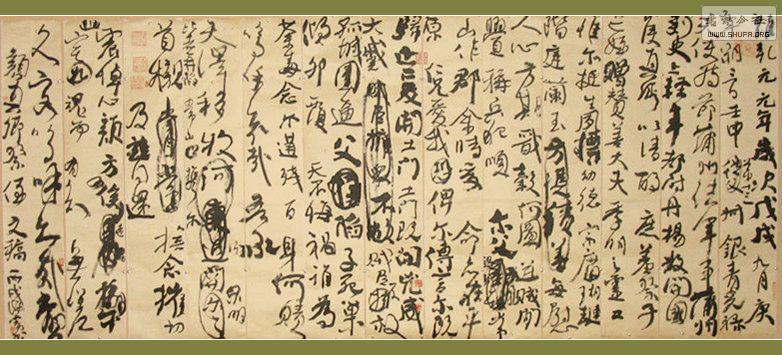 乾元元年歲次戊戌九月庚
午朔三日壬申叔銀青光祿
夫使持節蒲州諸軍事蒲州
刺史上輕車都尉丹楊縣開國
侯真卿以清酌庶羞祭于
亡姪贈贊善大夫季明之靈曰
惟爾挺生夙標幼德宗廟瑚璉
階庭蘭玉方憑積善每慰
人心方期戩穀何圖逆賊間
釁稱兵犯順爾父常
山作郡余時受命亦在平
原仁兄愛我俾爾傳言爾既
歸止爰開土門土門既開兇威
大蹙賊臣不救
孤城圍逼父陷子死巢
傾卵覆天不悔禍誰為
荼毒念爾遘殘百身何贖
嗚呼哀哉吾承
天澤移牧河關泉明
比者再陷常山攜爾
首櫬及茲同還撫念摧切
震悼心顏方俟
宅魂而有知無嗟
久客嗚呼哀哉尚饗
顏真卿祭侄文稿丙戌
WWW.SHUFA.ORG